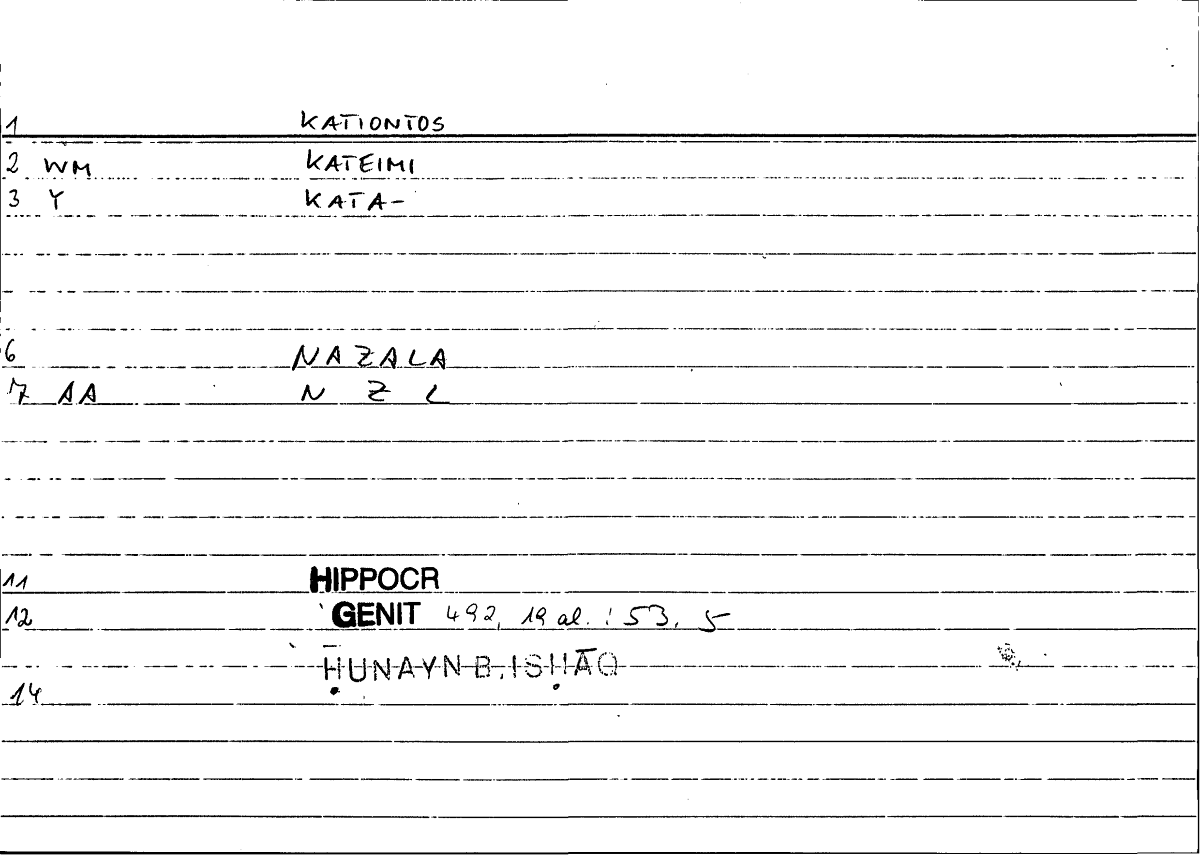 1 KATIONTOS
2 WM KATEIMI
3 Y KATA-
6 NAZALA
7 AA N Z L
11 HIPPOCR
12 GENIT 492, 19 al. : 53, 5
ḤUNAYN B. ISḤĀQ
14